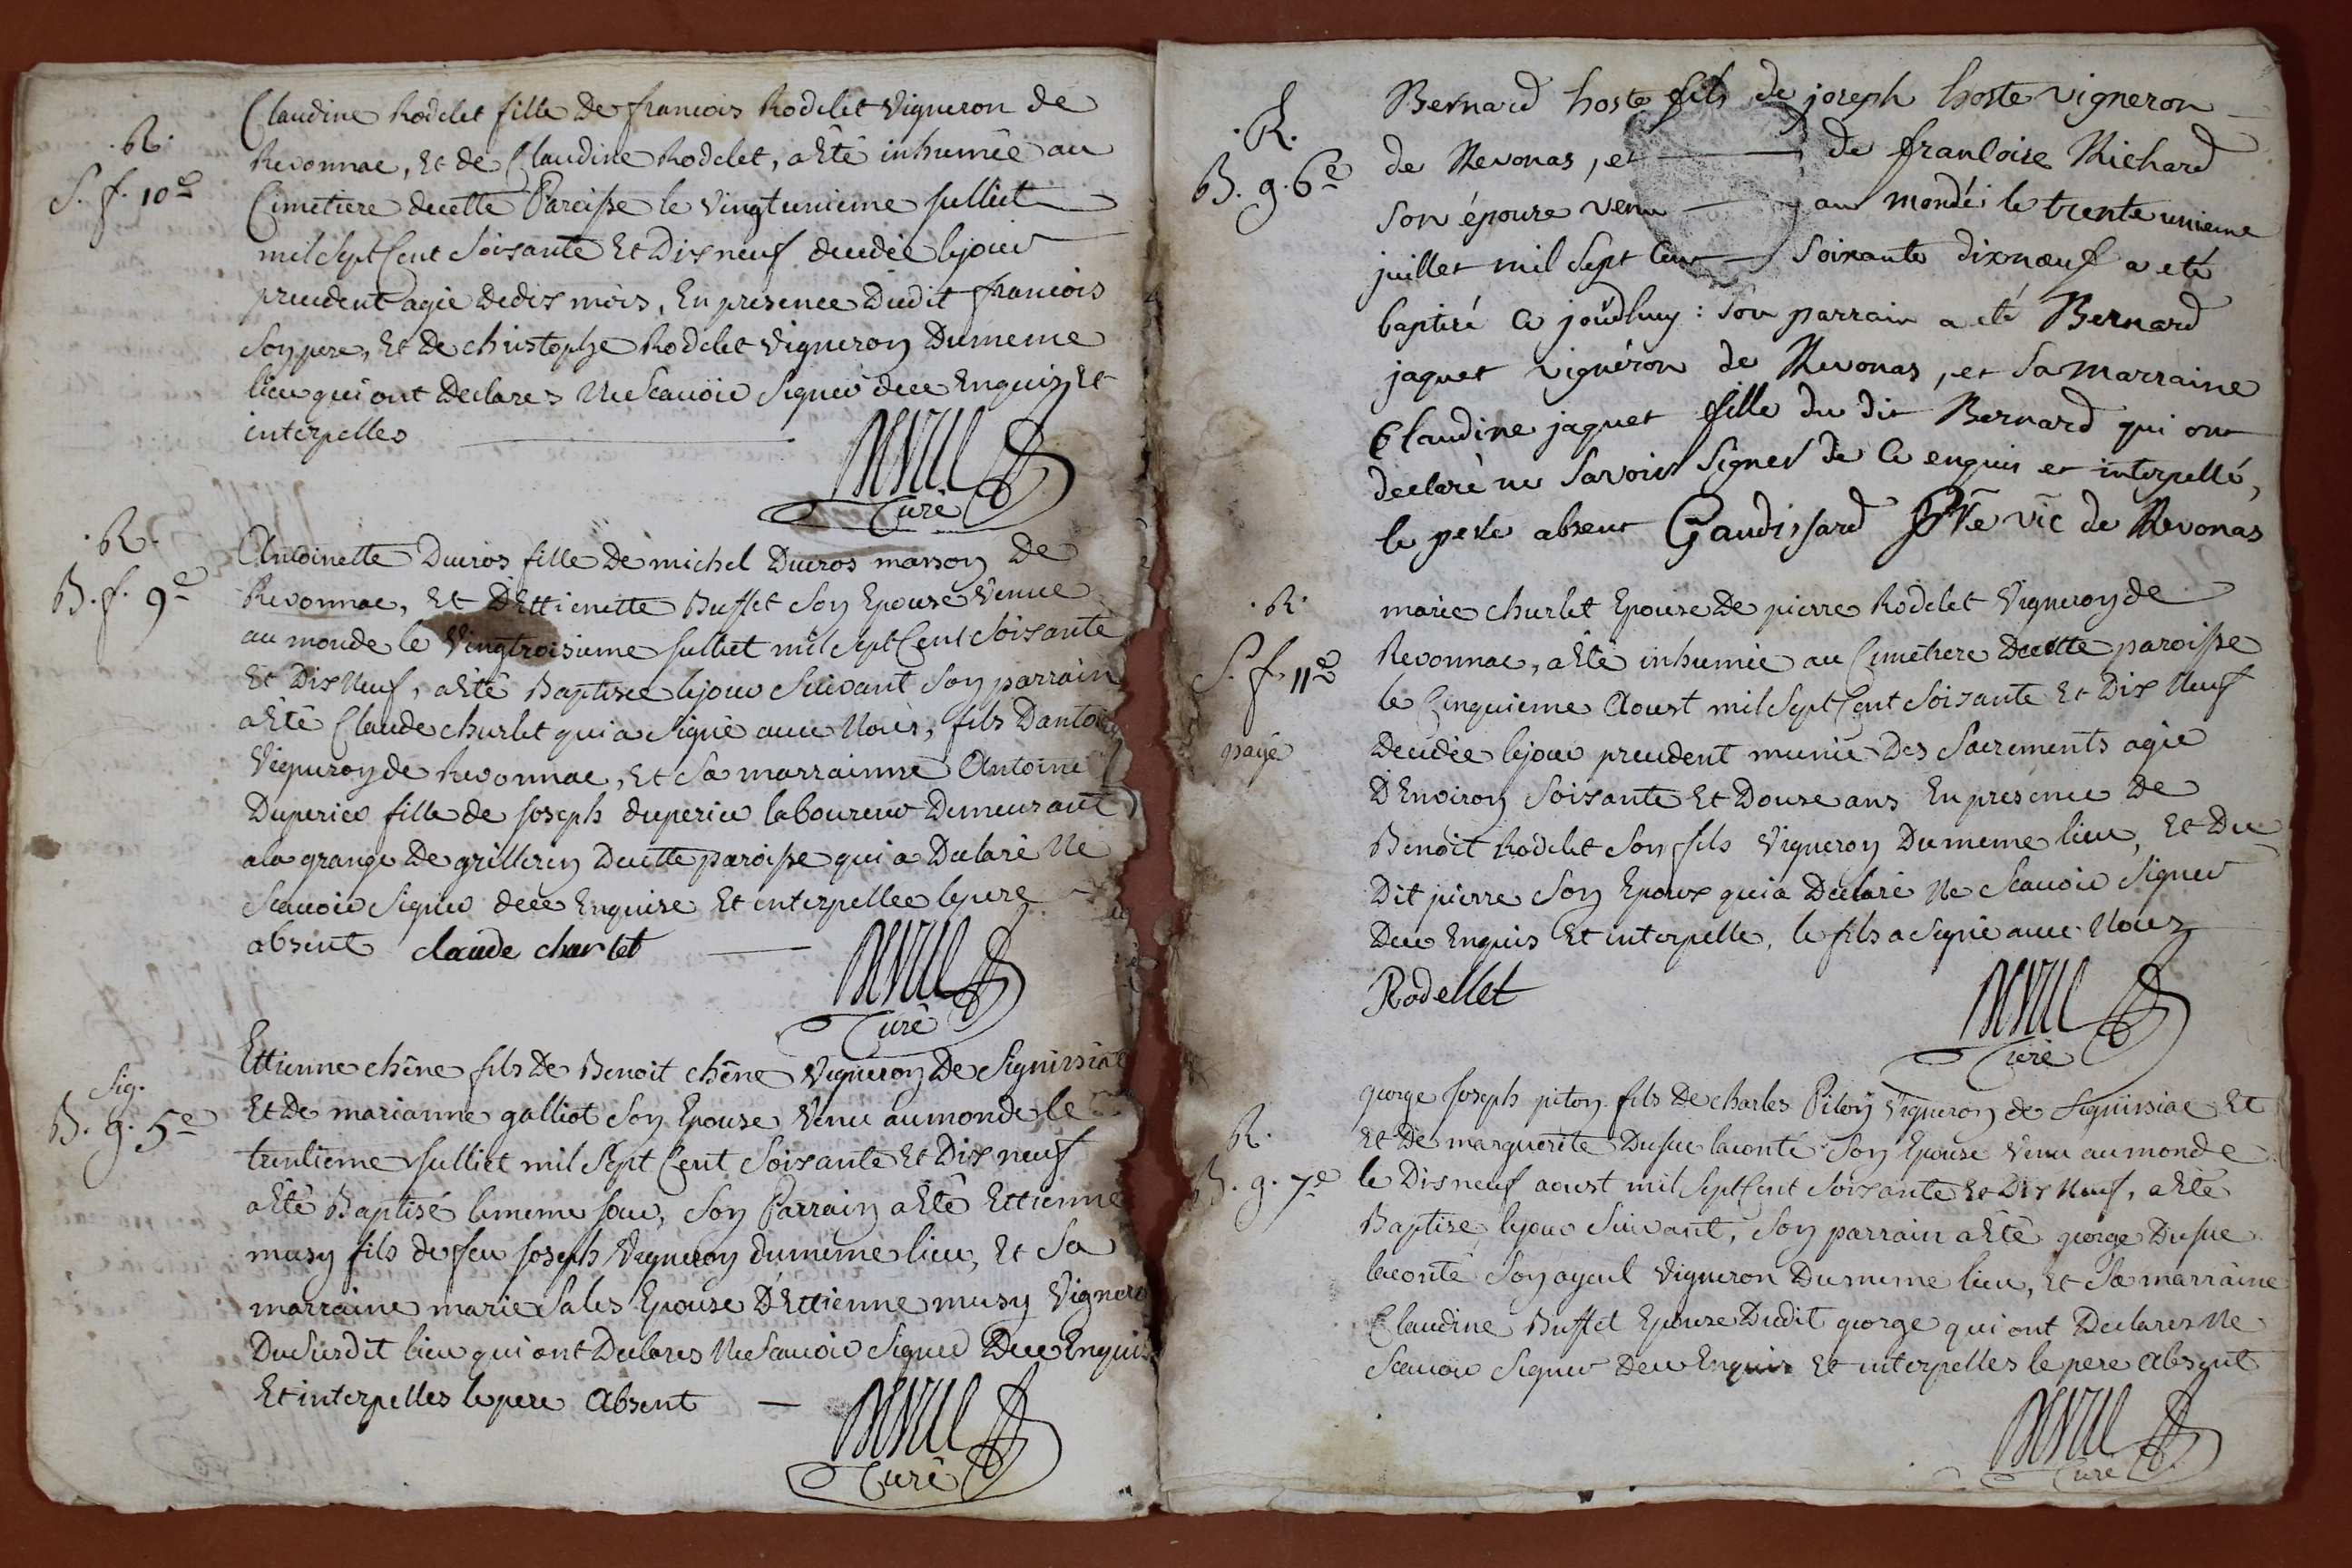 .R.
S. f. 10e
Claudine Rodelet fille De francois Rodelet Vigneron de
Revonnac, Et de Claudine Rodelet, a Eté inhumée au
Cimetiere decette Paroisse le Vingtunieme Julliet
mil sept Cent Soisante Et Dix neuf decedée lejour
precedent agée de dix mois, En presence Dudit francois
Son pere, Et De christophe Rodelet Vigneron Dumeme
lieu qui ont Declares Ne Scavoir Signer dece Enquis Et
interpelles
Curé
.R.
B. f. 9e
Antoinette Ducros fille De michel Ducros masson De
Revonnac, Et D'Ettienette Buffet Son Epouse Venue
au monde le Vingtroisieme Julliet mil sept Cent Soisante
Et Dix Neuf, a Eté Baptisee lejour Suivant Son parrain
a Eté Claude churlet qui a Signé avec Nous, fils Dantoi
Vigneron de Revonnac, Et Sa marrainne Antoine
Duperier fille de Joseph duperier laboureur Demeurant
a la grange De grillerin Decette paroisse qui a Declaré Ne
Scavoir Signer dece Enquise Et interpellee le pere
absent claude charlet
Curé
Sig.
B. g. 5e
Ettienne chêne fils De Benoit chêne Vigneron De Signissiat
Et De marianne galliot Son Epouse Venu au monde le
trentieme Julliet mil Sept Cent Soisante Et Dix neuf
a Eté Baptisé lememe Jour, Son Parrain a Eté Ettienne
musy fils de feu Joseph Vigneron dumeme lieu, Et Sa
marraine marie Sales Epouse D'Ettienne musy Vignero
Dusurdit lieu qui ont Declares Ne Scavoir Signer Dece Enquis
Et interpelles le pere Absent
Curé
.R.
B. g. 6e
Bernard hoste fils de joseph hoste vigneron
de Revonas, et de francoise Richard
son épouse venu au monde le trente unieme
juillet mil sept cent soixante dixnœuf a eté
baptisé ce jourdhuy : son parrain a eté Bernard
jaquet vigneron de Revonas, et sa marraine
Claudine jaquet fille du dit Bernard qui ont
declaré ne savoir signer de ce enquis et interpellé,
le pere absent Gaudissard Ptre vic de Revonas
.R.
S. f. 11e
payé
marie churlet Epouse De pierre Rodelet Vigneron de
Revonnac, a Eté inhumée au Cimetiere Decette paroisse
le Cinquieme Aoust mil Sept Cent Soisante Et Dix Neuf
Decedée lejour precedent munie Des Sacrements agée
D'Environ Soisante Et Douse ans En presence De
Benoit Rodelet Son fils Vigneron Dumeme lieu, Et Du
Dit pierre Son Epoux qui a Declaré Ne Scavoir Signer
Dece Enquis Et interpelle, le fils a Signé avec Nous
Rodellet
Curé
R.
B. g. 7e
george Joseph piton fils De charles Piton Vigneron de Signissiac Et
Et De marguerite Dufue laconté Son Epouse Venu au monde
le Dix neuf aoust mil Sept Cent Soisante Et Dix Neuf, a Eté
Baptise lejour Suivant, Son parrain a Eté george Dufue
laconté Son ayeul Vigneron Dumeme lieu, Et Sa marraine
Claudine Buffet Epouse Dudit george qui ont Declares Ne
Scavoir Signer Dece Enquis Et interpelles le pere Absent
Curé